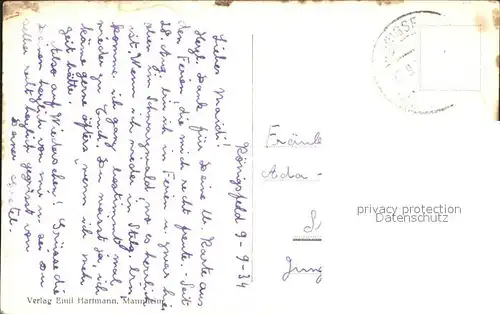 Königsfeld 9-9-34
Liebes Maidi!
Herzl. Dank für Deine lb. Karte aus
den Ferien, die mich recht freute. - Seit
28. Aug. bin ich in Ferien u. zwar hier
oben im Schwarzwald, wo es herrlich
ist. Wenn ich wieder in Stbg. bin
komme ich ganz bestimmt mal
wieder zu Euch. Du weisst ja, ich
käme gerne öfters wenn ich mehr
Zeit hätte.
Also auf Wiedersehen! Grüsse die
Deinen herzlich von mir u. sei Du
selber recht herzlich gegrüsst von
Deiner
Fräulein
Ada
Jung
privacy protection
Datenschutz
Verlag Emil Hartmann, Mannheim